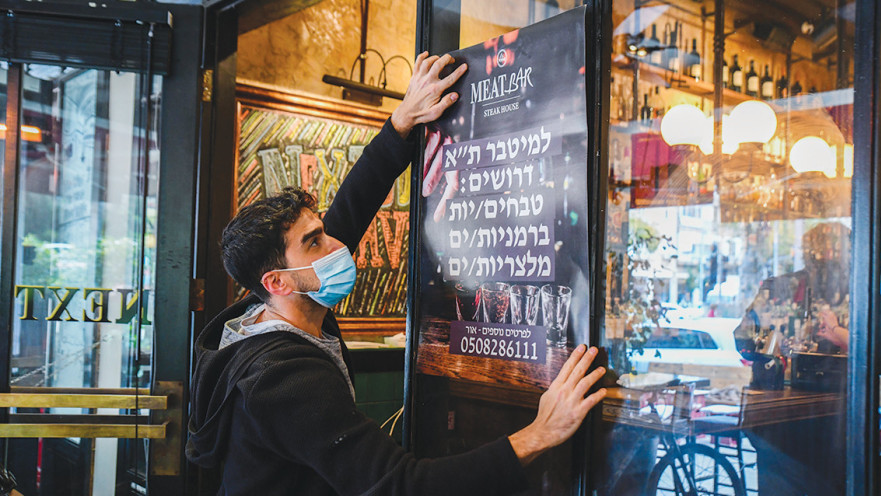 MEAT BAR
STEAK HOUSE
למיטבר ת״א
דרושים:
טבחים/יות
ברמניות/ים
מלצריות/ים
לפרטים נוספים - אור
0508286111
NEXT